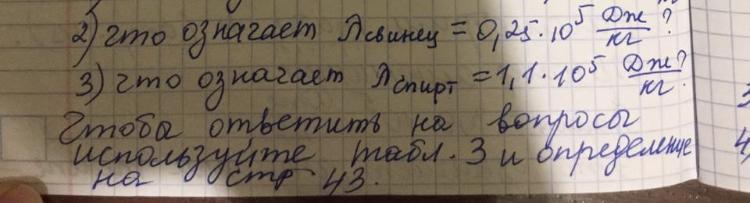 2) что означает λсвинец = 0,25·10⁵ Дж/кг?
3) что означает λспирт = 1,1·10⁵ Дж/кг?
Чтобы ответить на вопросы
используйте табл. 3 и определение
на стр 43.